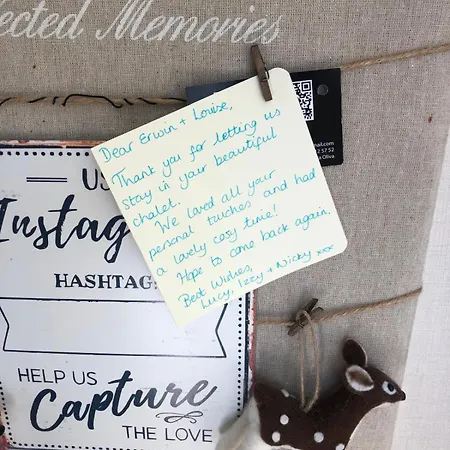 ected Memories
Dear Erwin + Louise,
Thank you for letting us
stay in your beautiful
chalet.
We loved all your
personal tuches and had
a lovely cosy time!
Hope to come back again.
Best Wishes,
Lucy, Izzy + Nicky xxx
mail.com
2 57 52
a Oliva
US
Instag
HASHTAG
HELP US
Capture
THE LOVE